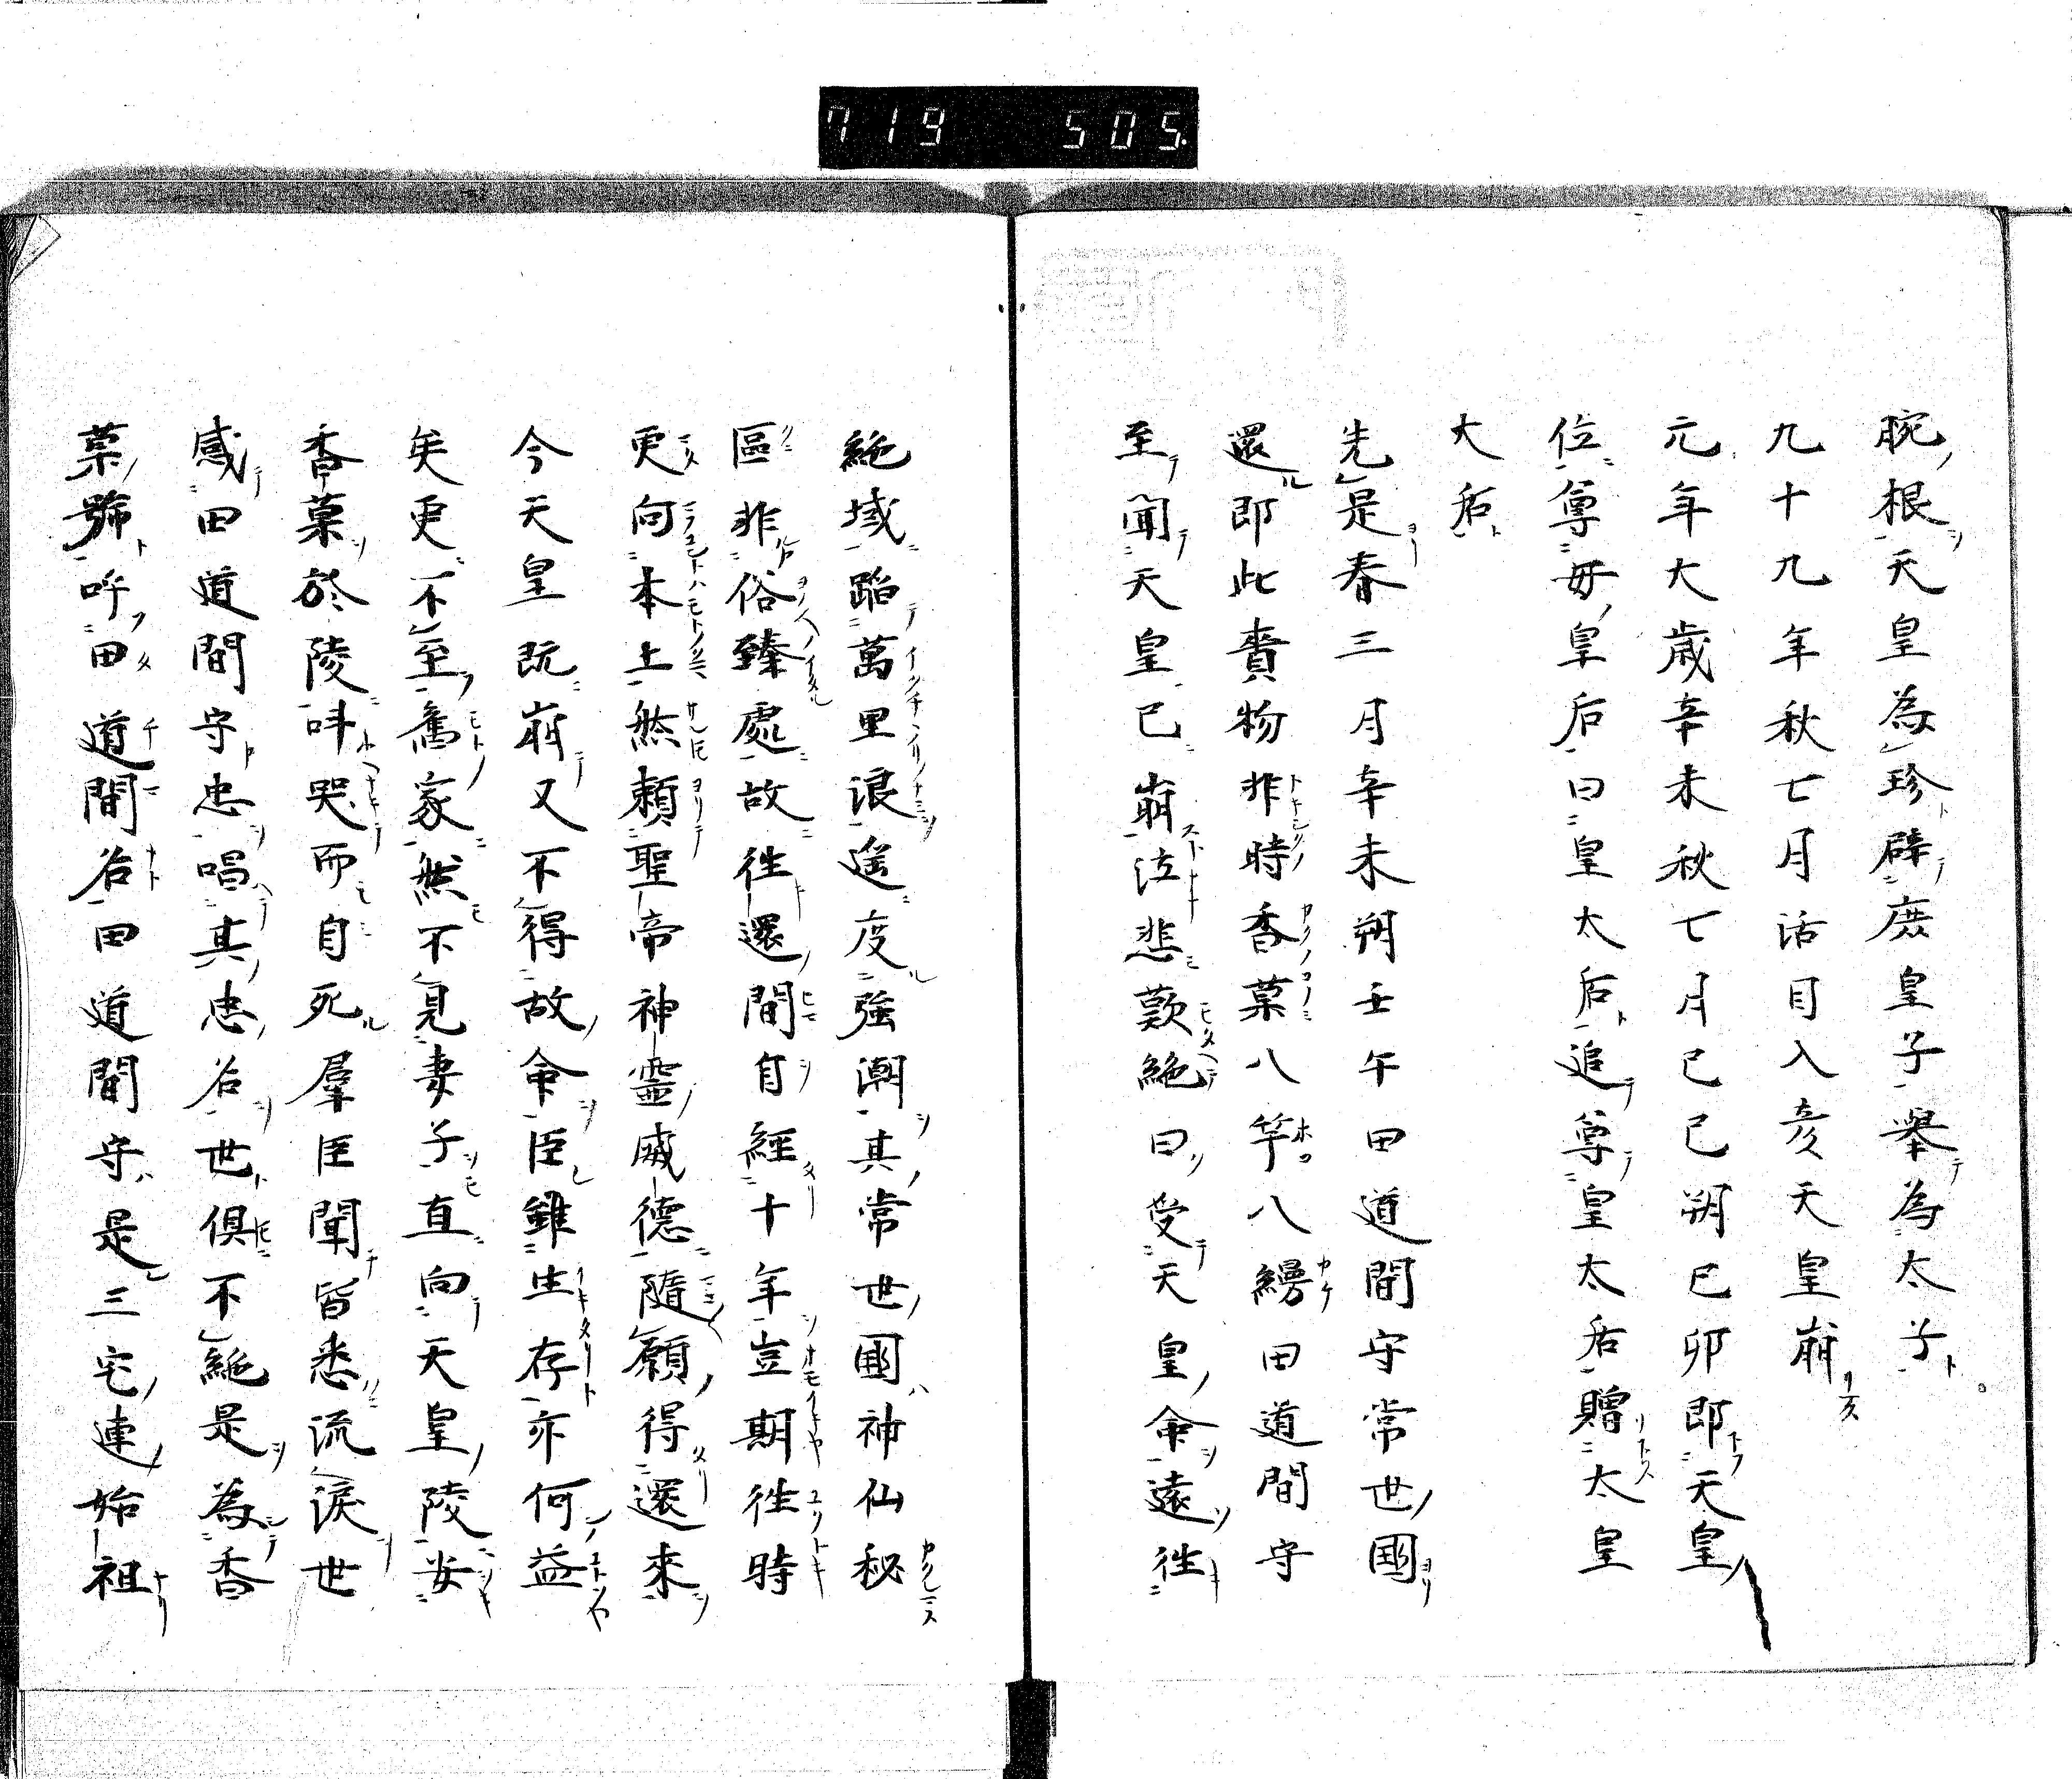 719 505
腕根天皇為珍辟庶皇子舉為太子
九十九年秋七月活目入彥天皇崩
元年大歲辛未秋七月己巳朔己卯即天皇
位尊毋皇后曰皇太后追尊皇太后贈太皇
大后
先是春三月辛未朔壬午田道間守常世國
還即此賷物非時香菓八竿八縵田道間守
至聞天皇已崩泣悲歎絶曰受天皇命遠往
絶域蹈萬里浪遙度強潮其常世國神仙秘
區非俗臻處故往還間自經十年豈期往時
更向本土然頼聖帝神靈威德隨願得還來
今天皇既崩又不得故命臣雖生存亦何益
矣更不至舊家然不見妻子直向天皇陵安
香菓於陵呌哭而自死羣臣聞皆悉流淚世
感田道間守忠唱其忠名世俱不絶是為香
菓號呼田道間名田道間守是三宅連始祖